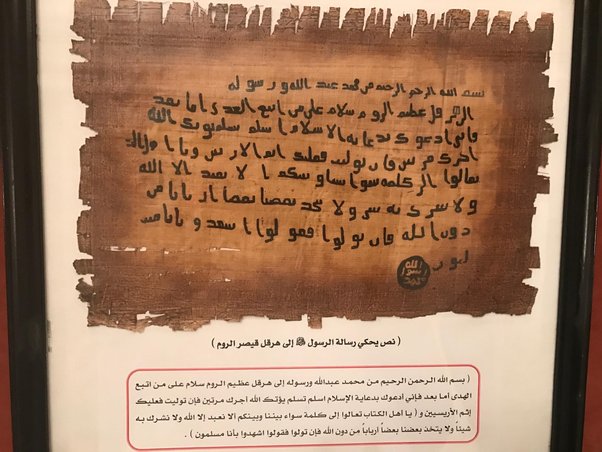 بسم الله الرحمن الرحيم من محمد عبد الله ورسوله
الى هرقل عظيم الروم سلام على من اتبع الهدى اما بعد
فانى ادعوك بدعاية الاسلام اسلم تسلم يوتك الله
اجرك مرتين فان توليت فعليك اثم الاريسين ويا اهل
تعالوا الى كلمه سوا بيننا وبينكم الا نعبد الا الله
ولا نشرك به شيا ولا يتخذ بعضنا بعضا اربابا من
دون الله فان تولوا فقولوا اشهدوا بانا مس
لمون
الله
رسول
محمد
( نص يحكي رسالة الرسول ﷺ إلى هرقل قيصر الروم )
( بسم الله الرحمن الرحيم من محمد عبدالله ورسوله إلى هرقل عظيم الروم سلام على من اتبع
الهدى أما بعد فإني ادعوك بدعاية الإسلام اسلم تسلم يؤتك الله اجرك مرتين فإن توليت فعليك
إثم الأريسيين و ( يا أهل الكتاب تعالوا إلى كلمة سواء بيننا وبينكم ألا نعبد إلا الله ولا نشرك به
شيئاً ولا يتخذ بعضنا بعضاً أرباباً من دون الله فإن تولوا فقولوا اشهدوا بأنا مسلمون ) .